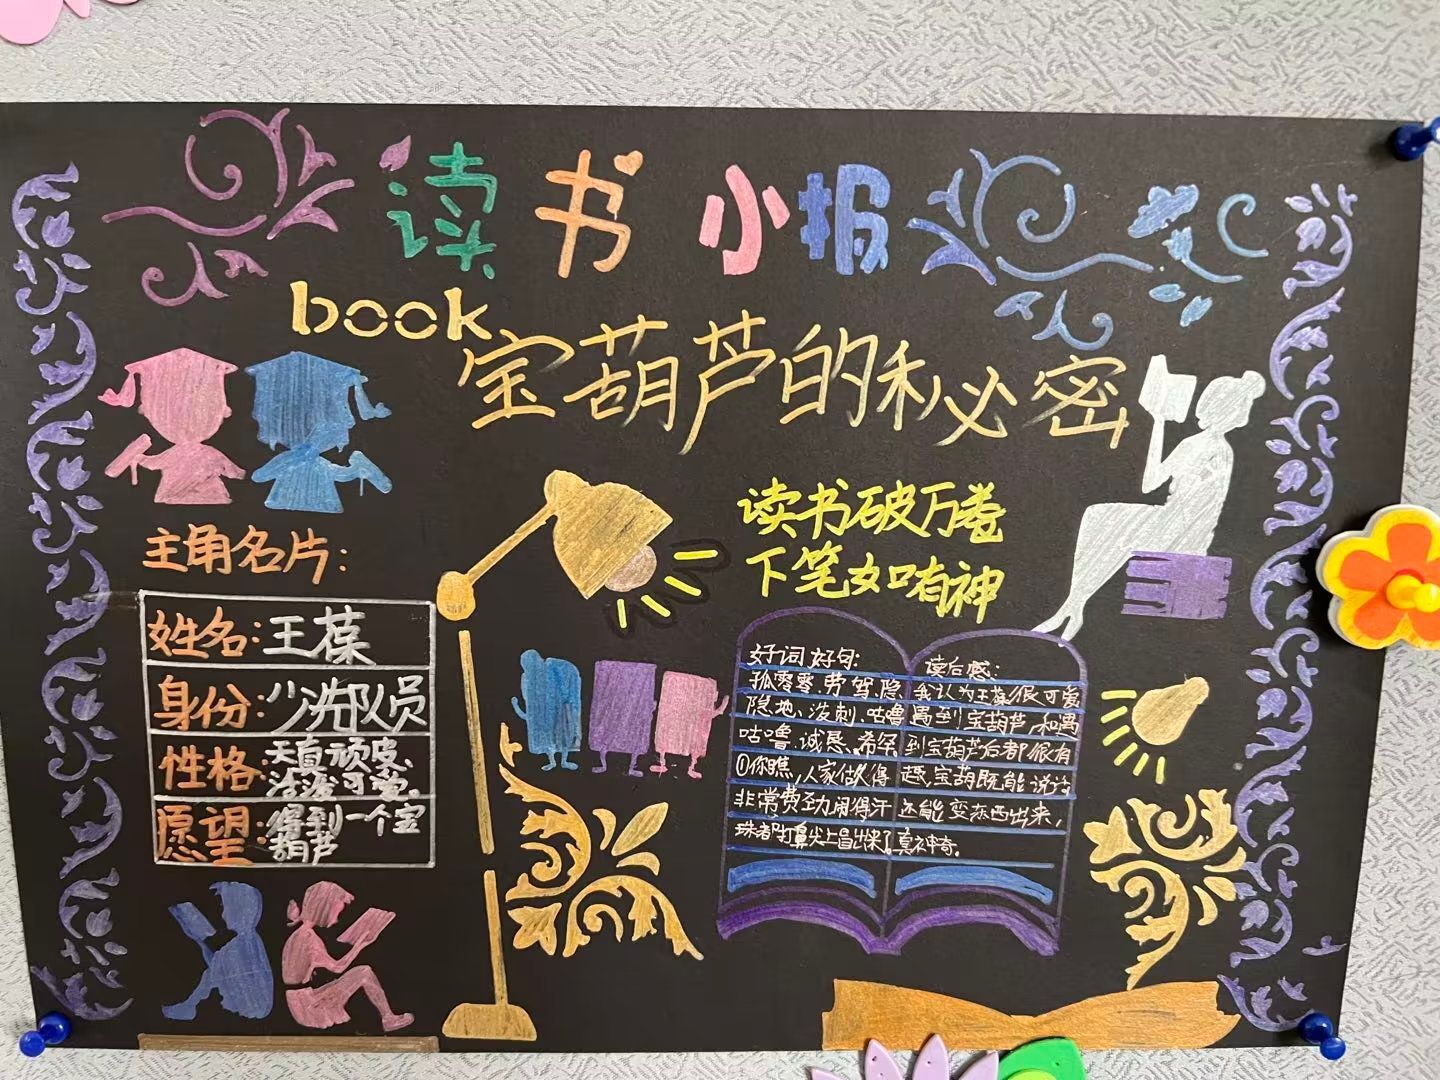 读书小报
book
宝葫芦的秘密
读书破万卷
下笔如有神
主角名片:
姓名:王葆
身份:少先队员
性格:天真顽皮、
活泼可爱。
愿望:得到一个宝
葫芦
好词好句:
孤零零、劳驾、隐
隐地、泼刺、咕噜
咕噜、诚恳、希罕
①你瞧,人家做得
非常费劲,闹得汗
珠都打鼻尖上冒出来了。
读后感:
我认为王葆很可爱
遇到宝葫芦,和遇
到宝葫芦后都很有
趣,宝葫既能说话
还能变东西出来,
真神奇。